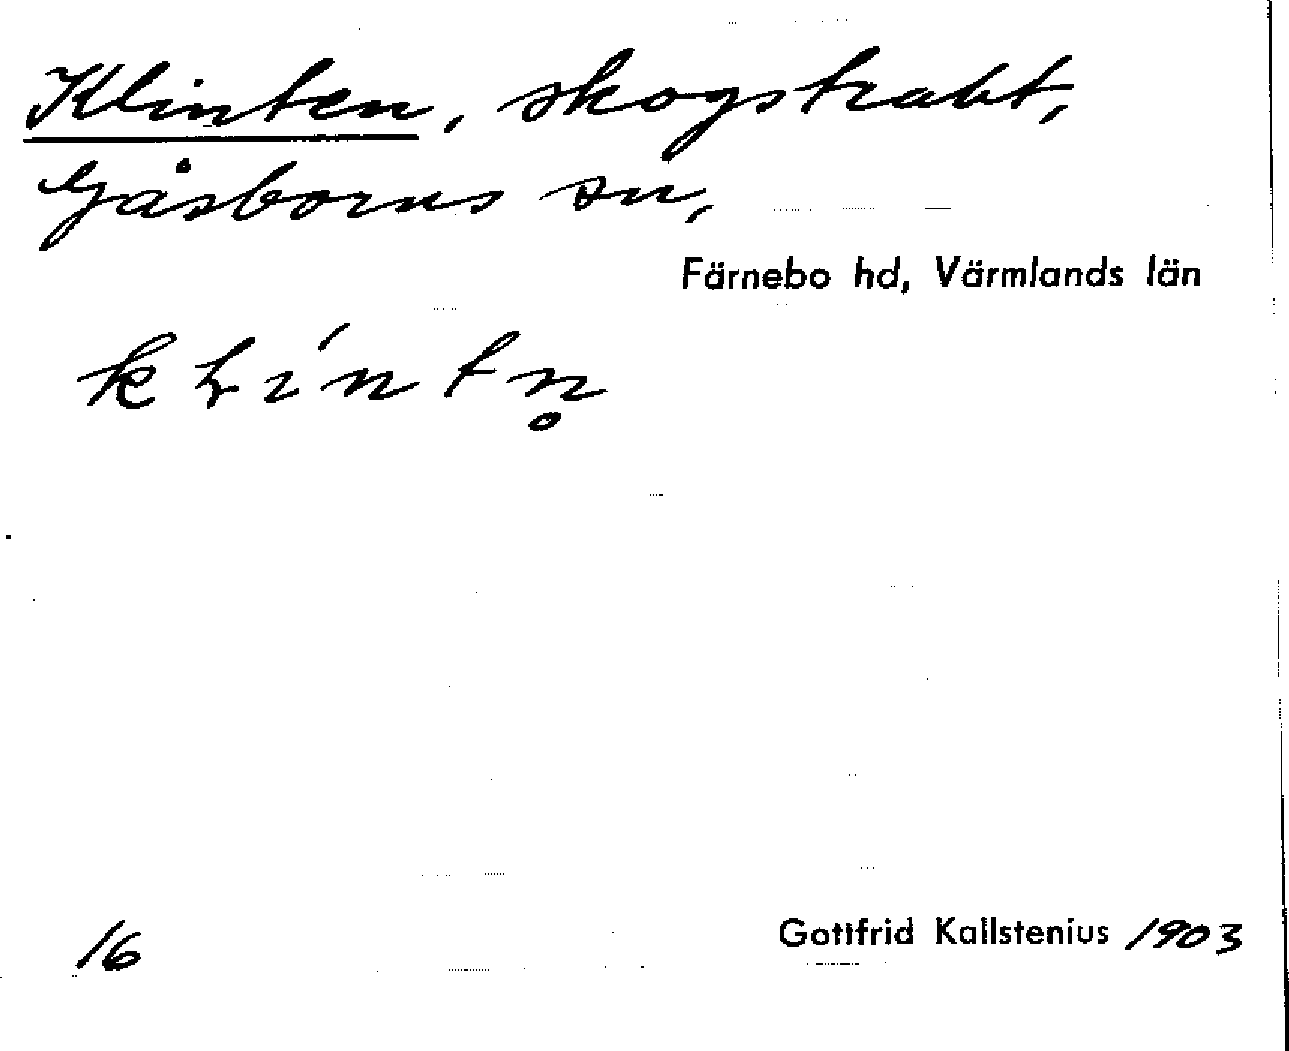 Klinten, skogstrakt,
Gåsborns sn,
Färnebo hd, Värmlands län
16
Gottfrid Kallstenius 1903